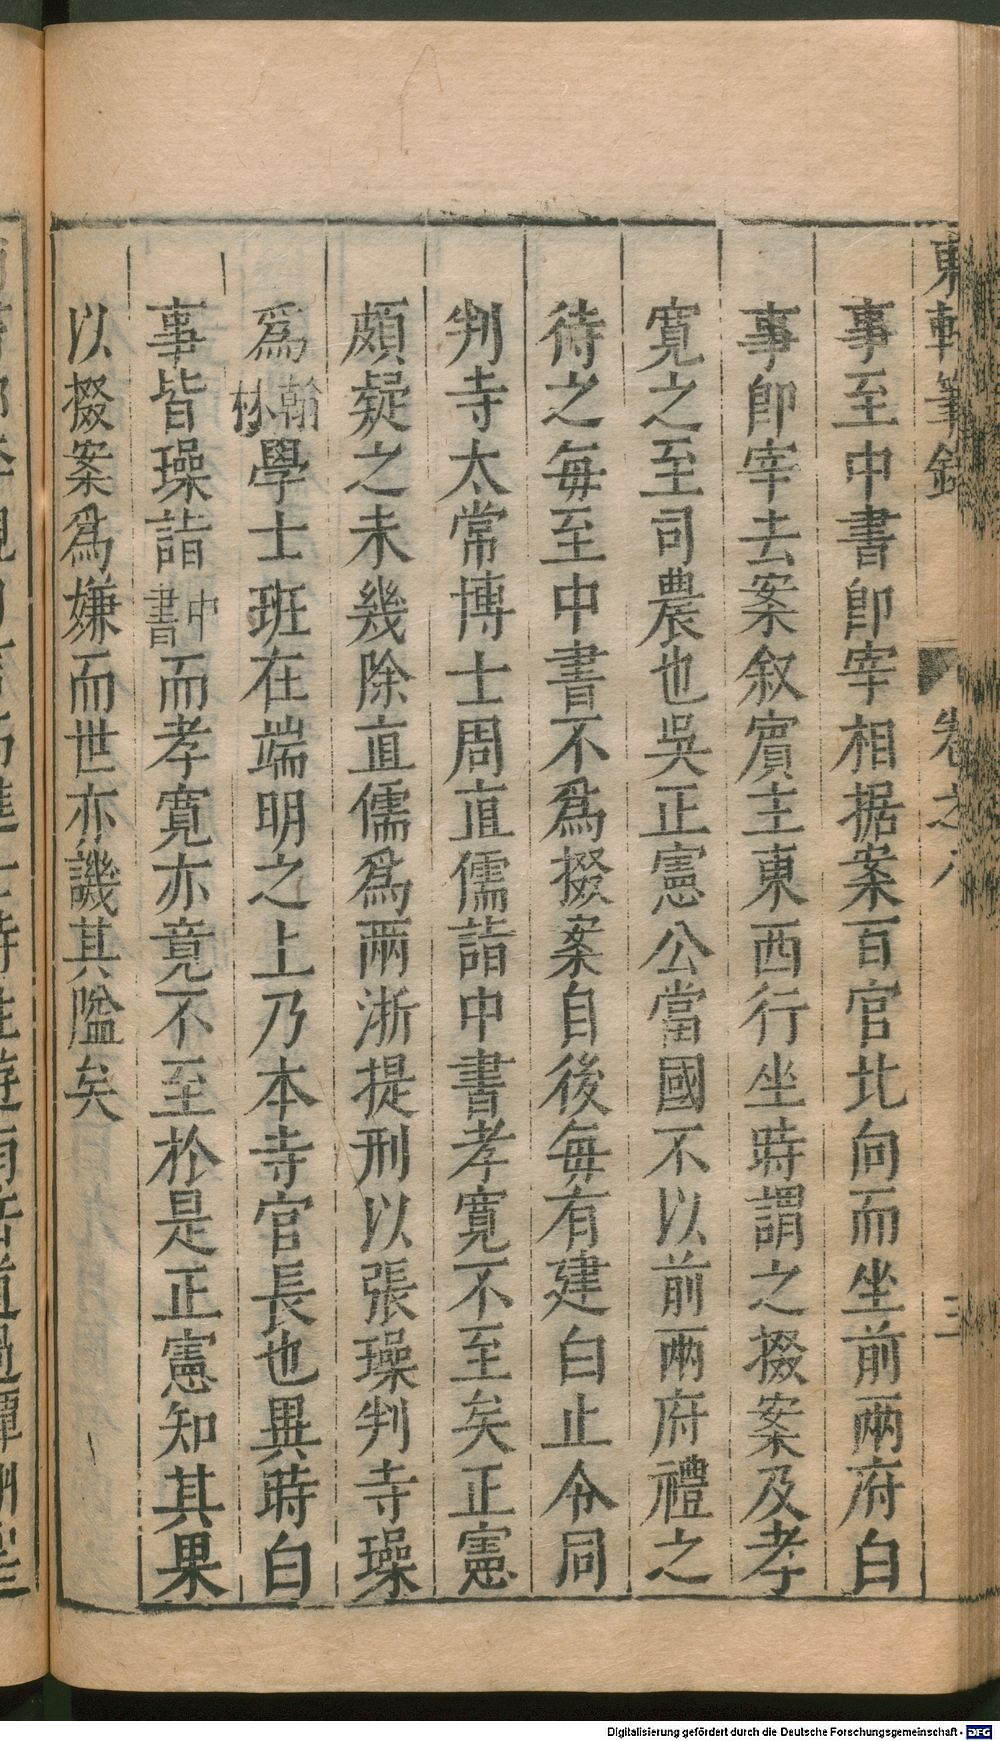 東軒筆錄 卷之八 三
事至中書卽宰相据案百官北向而坐前兩府白
事卽宰去案叙賔主東西行坐時謂之掇案及孝
寛之至司農也吳正憲公當國不以前兩府禮之
待之毎至中書不爲掇案自後毎有建白止令同
判寺太常博士周直儒詣中書孝寛不至矣正憲
頗疑之未幾除直儒爲兩浙提刑以張璪判寺璪
爲翰林學士班在端明之上乃本寺官長也異時白
事皆璪詣中書而孝寛亦竟不至於是正憲知其果
以掇案爲嫌而世亦譏其隘矣
Digitalisierung gefördert durch die Deutsche Forschungsgemeinschaft - DFG